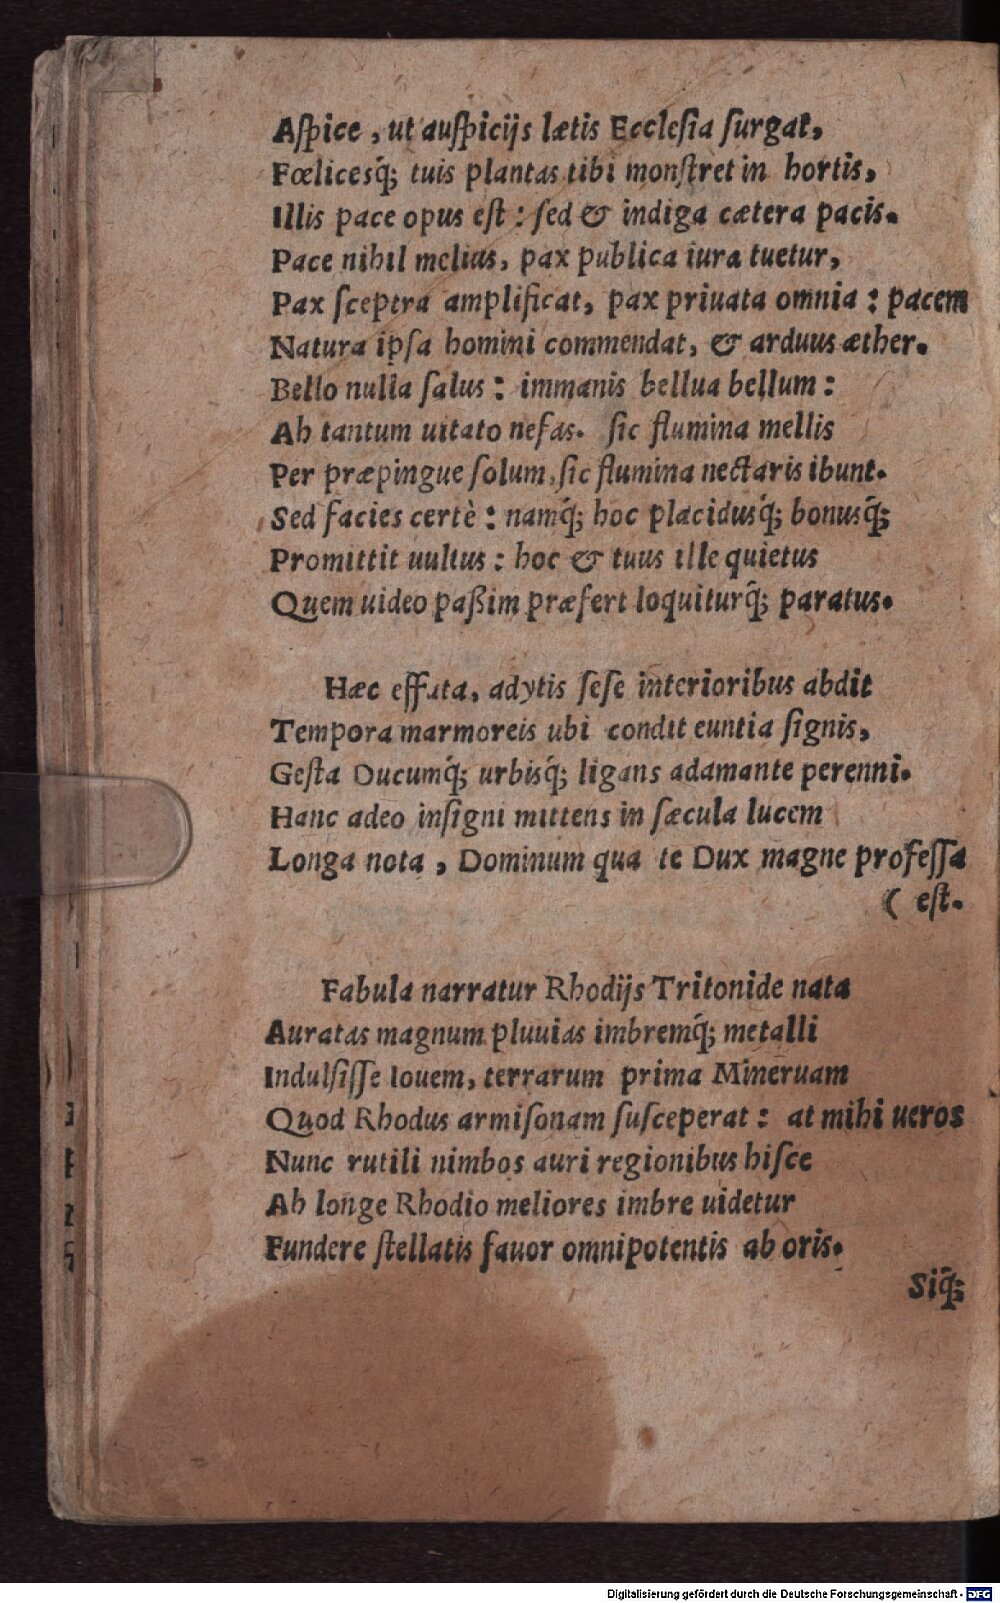 Aſpice, ut auſpicijs lætis Eccleſia ſurgat,
Fœlicesq́; tuis plantas tibi monſtret in hortis,
Illis pace opus eſt: ſed & indiga cætera pacis.
Pace nihil melius, pax publica iura tuetur,
Pax ſceptra amplificat, pax priuata omnia: pacem
Natura ipſa homini commendat, & arduus æther.
Bello nulla ſalus: immanis bellua bellum:
Ah tantum uitato nefas. ſic flumina mellis
Per præpingue ſolum, ſic flumina nectaris ibunt.
Sed facies certè: namq́; hoc placidusq́; bonusq́;
Promittit uultus: hoc & tuus ille quietus
Quem uideo paßim præfert loquiturq́; paratus.
Hæc effata, adytis ſeſe interioribus abdit
Tempora marmoreis ubi condit euntia ſignis,
Geſta Ducumq́; urbisq́; ligans adamante perenni.
Hanc adeo inſigni mittens in ſæcula lucem
Longa nota, Dominum qua te Dux magne profeſſa
( eſt.
Fabula narratur Rhodijs Tritonide nata
Auratas magnum pluuias imbremq́; metalli
Indulſiſſe Iouem, terrarum prima Mineruam
Quod Rhodus armiſonam ſuſceperat: at mihi ueros
Nunc rutili nimbos auri regionibus hiſce
Ah longe Rhodio meliores imbre uidetur
Fundere ſtellatis fauor omnipotentis ab oris.
Siq́;
Digitalisierung gefördert durch die Deutsche Forschungsgemeinschaft - DFG